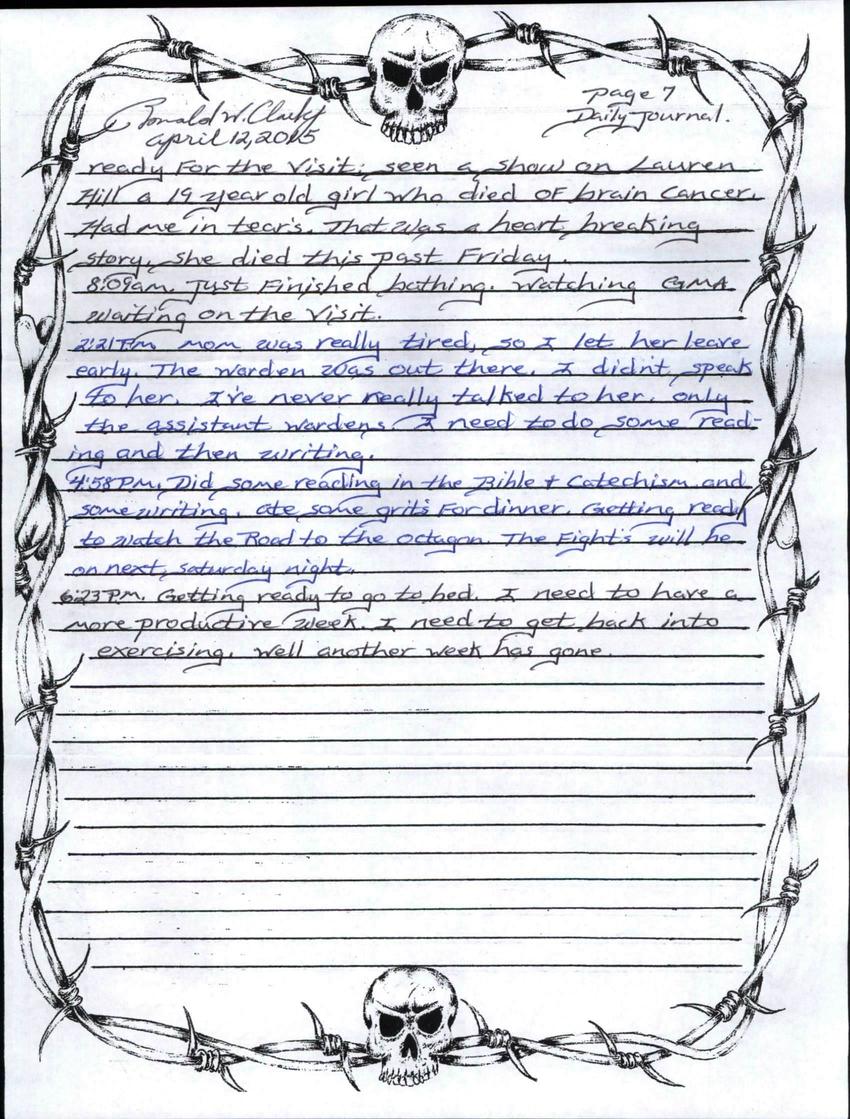 page 7
Ronald W. Clark Jr
Daily Journal.
april 12, 2015
ready For the Visit; seen a show on Lauren
Hill a 19 year old girl who died of brain cancer.
Had me in tear's. That was a heart breaking
story, she died this past Friday.
8:09am. Just Finished bathing. Watching GMA
waiting on the Visit.
2:21Pm mom was really tired, so I let her leave
early. The warden was out there. I didn't speak
to her. I've never really talked to her, only
the assistant wardens. I need to do some read-
ing and then writing.
4:58PM. Did some reading in the Bible + Catechism and
some writing. ate some grits For dinner. Getting ready
to watch the Road to the Octagon. The Fight's will be
on next saturday night.
6:23PM. Getting ready to go to bed. I need to have a
more productive week. I need to get back into
exercising. Well another week has gone.